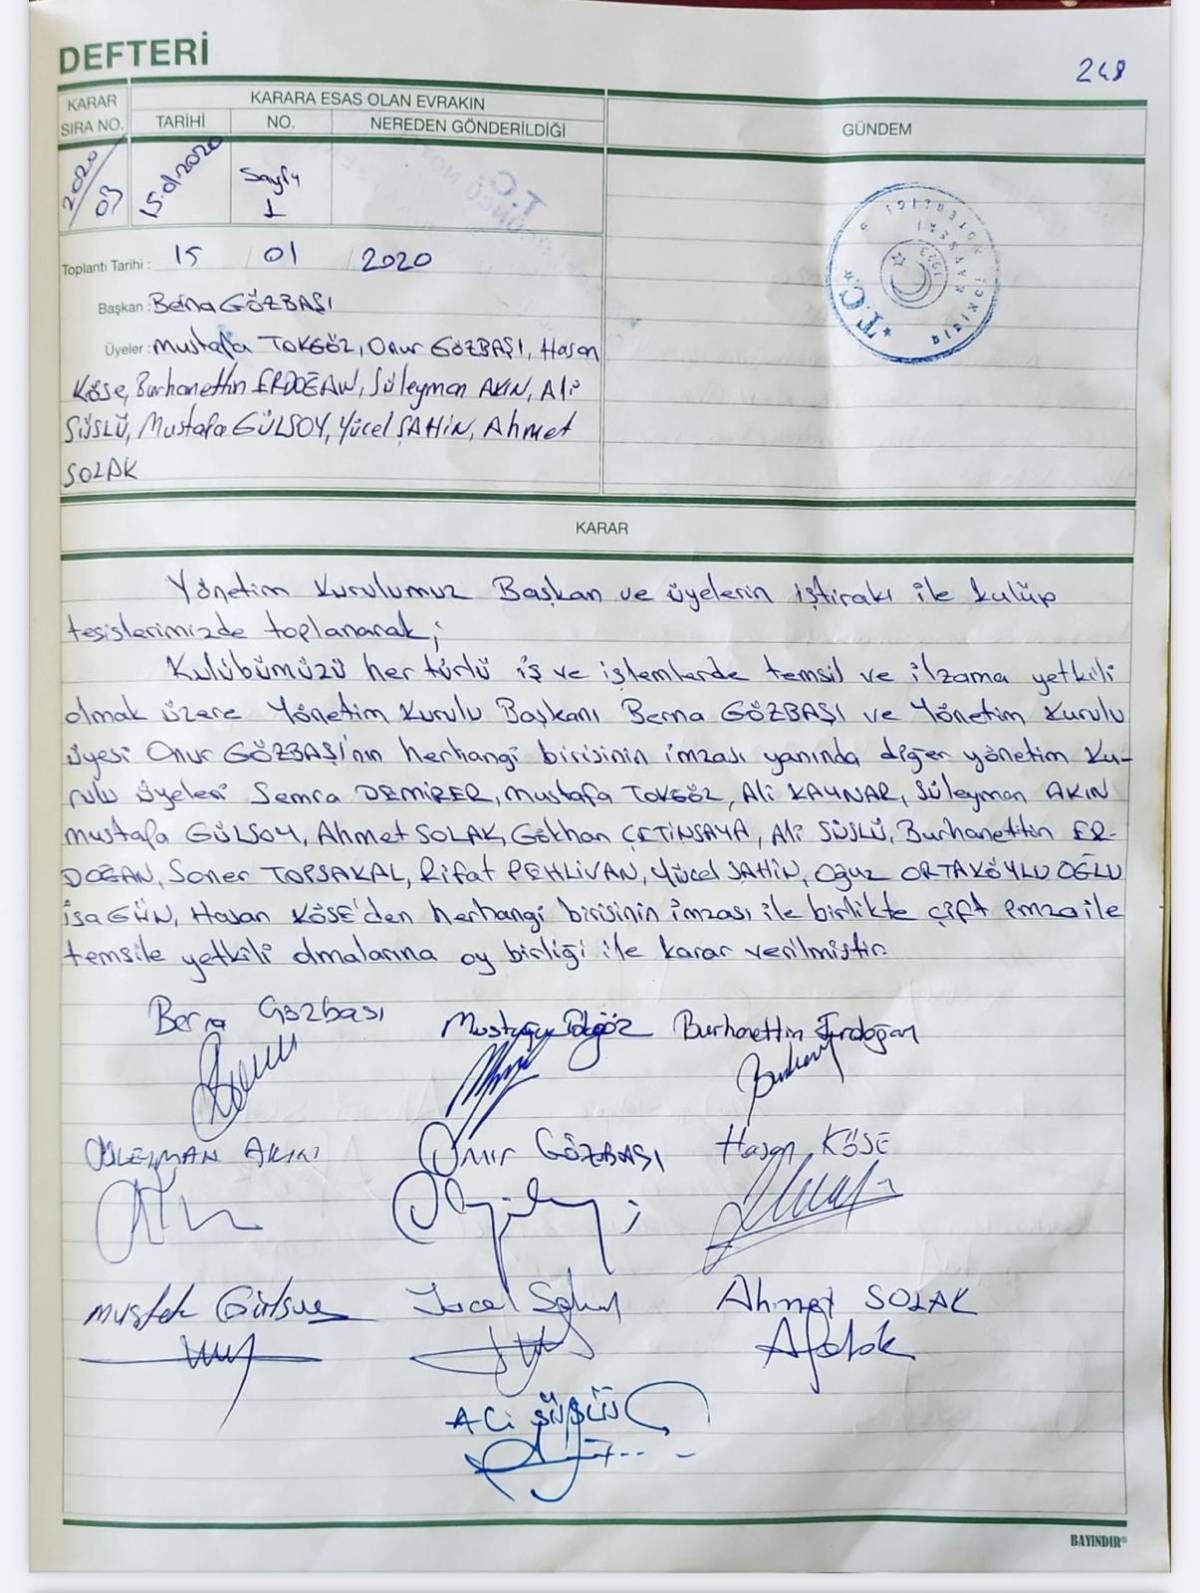 DEFTERİ
248
KARAR
SIRA NO.
KARARA ESAS OLAN EVRAKIN
TARİHİ
NO.
NEREDEN GÖNDERİLDİĞİ
GÜNDEM
2020/03
15.01.2020
Sayfa
1
T.C.
Toplantı Tarihi : 15 01 2020
Başkan : Berna GÖZBAŞI
Üyeler : Mustafa TOKGÖZ, Onur GÖZBAŞI, Hasan
Köse, Burhanettin ERDOĞAN, Süleyman AKIN, Ali
SÜSLÜ, Mustafa GÜLSOY, Yücel ŞAHİN, Ahmet
SOLAK
T.C.
KARAR
Yönetim Kurulumuz Başkan ve üyelerin iştirakı ile kulüp
tesislerimizde toplanarak;
Kulübümüzü her türlü iş ve işlemlerde temsil ve ilzama yetkili
olmak üzere Yönetim Kurulu Başkanı Berna GÖZBAŞI ve Yönetim Kurulu
üyesi Onur GÖZBAŞI'nın herhangi birisinin imzası yanında diğer yönetim Ku-
rulu üyeleri Semra DEMİRER, Mustafa TOKGÖZ, Ali KAYNAR, Süleyman AKIN
Mustafa GÜLSOY, Ahmet SOLAK, Gökhan ÇETİNSAYA, Ali SÜSLÜ, Burhanettin ER-
DOĞAN, Soner TOPSAKAL, Rifat PEHLİVAN, Yücel ŞAHİN, Oğuz ORTAKÖYLU OĞLU
İsa GÜN, Hasan KÖSE'den herhangi birisinin imzası ile birlikte çift imza ile
temsile yetkili olmalarına oy birliği ile karar verilmiştir.
Berna Gözbaşı
Mustafa Tokgöz
Burhanettin Erdoğan
SÜLEYMAN AKIN
Onur GÖZBAŞI
Hasan KÖSE
Mustafa Gülsoy
Yücel Şahin
Ahmet SOLAK
Ali SÜSLÜ
BAYINDIR®